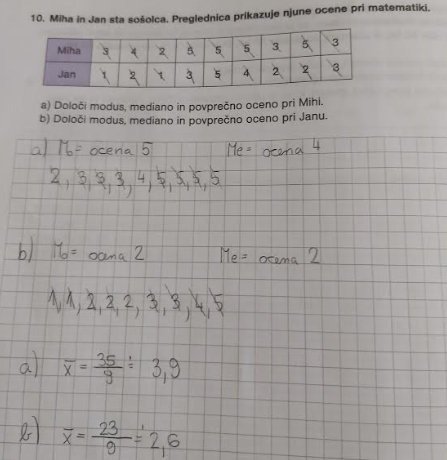 10. Miha in Jan sta sošolca. Preglednica prikazuje njune ocene pri matematiki.
Miha 3 4 2 5 5 5 3 5 3
Jan 1 2 1 3 5 4 2 2 3
a) Določi modus, mediano in povprečno oceno pri Mihi.
b) Določi modus, mediano in povprečno oceno pri Janu.
a) Mo = ocena 5 Me = ocena 4
2, 3, 3, 3, 4, 5, 5, 5, 5
b) Mo = ocena 2 Me = ocena 2
1, 1, 2, 2, 2, 3, 3, 4, 5
a) x̄ = 35/9 ≐ 3,9
b) x̄ = 23/9 ≐ 2,6